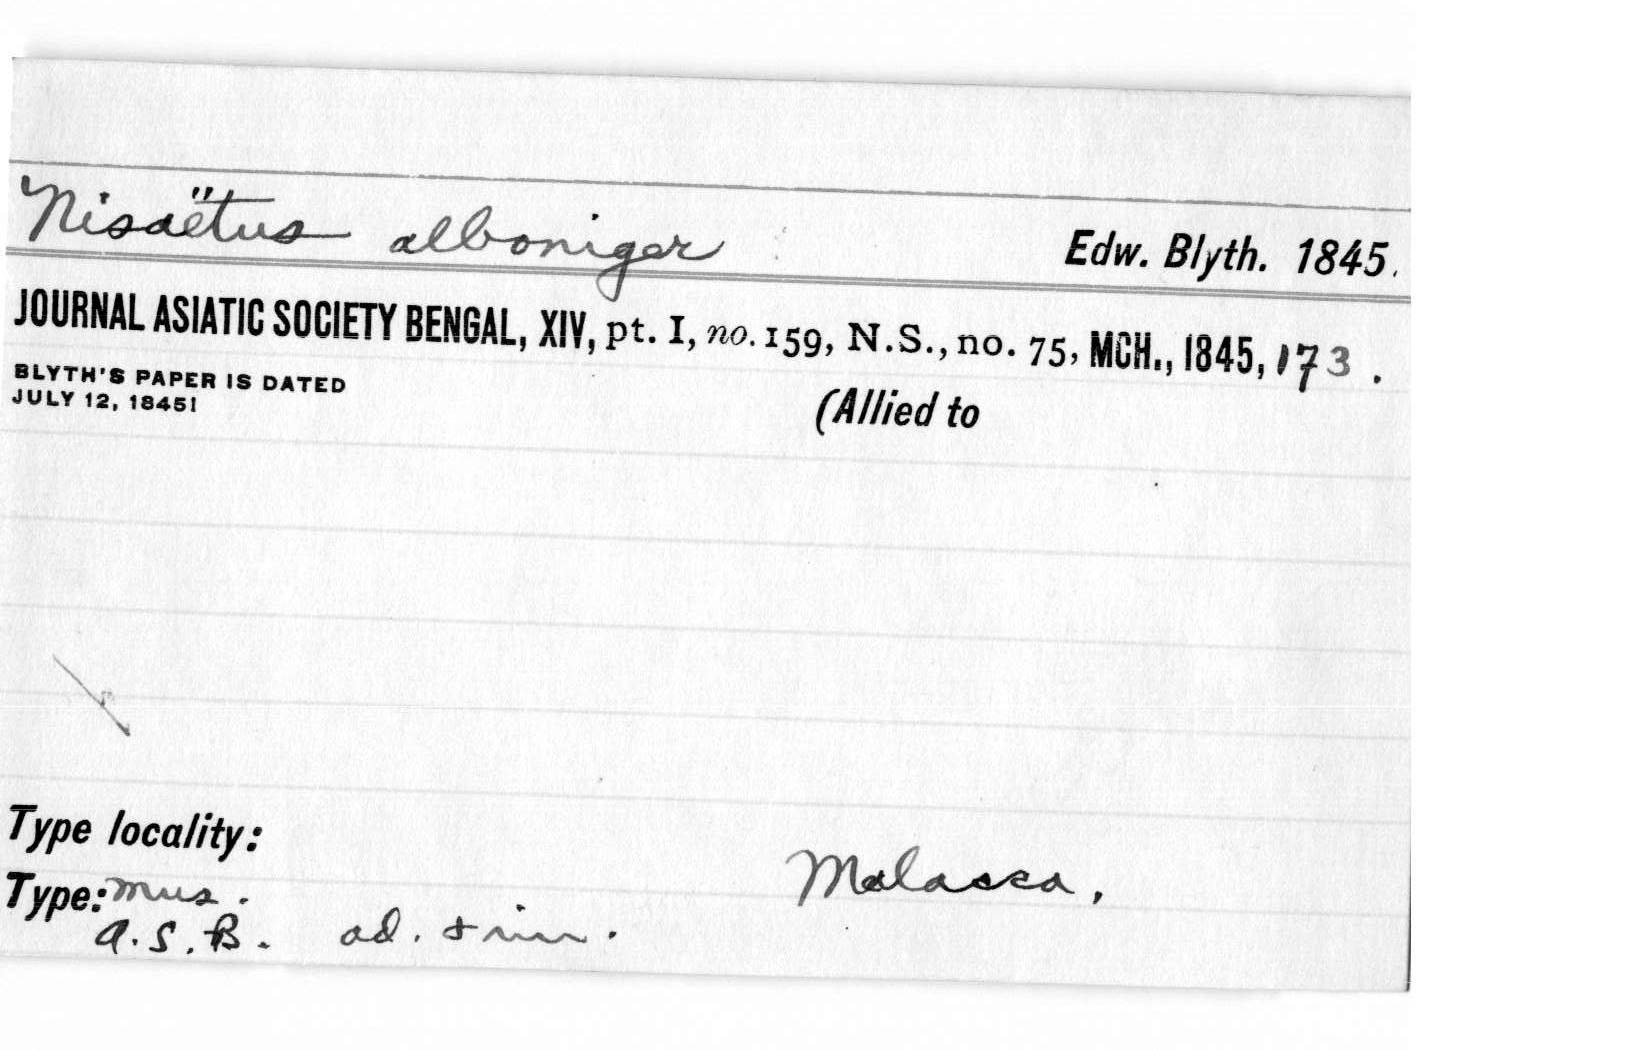 Nisaëtus alboniger Edw. Blyth. 1845.
JOURNAL ASIATIC SOCIETY BENGAL, XIV, pt. I, no. 159, N.S., no. 75, MCH., 1845, 173.
BLYTH'S PAPER IS DATED
JULY 12, 1845!
(Allied to
Type locality:
Malacca,
Type: mus.
A.S.B. ad. + im.